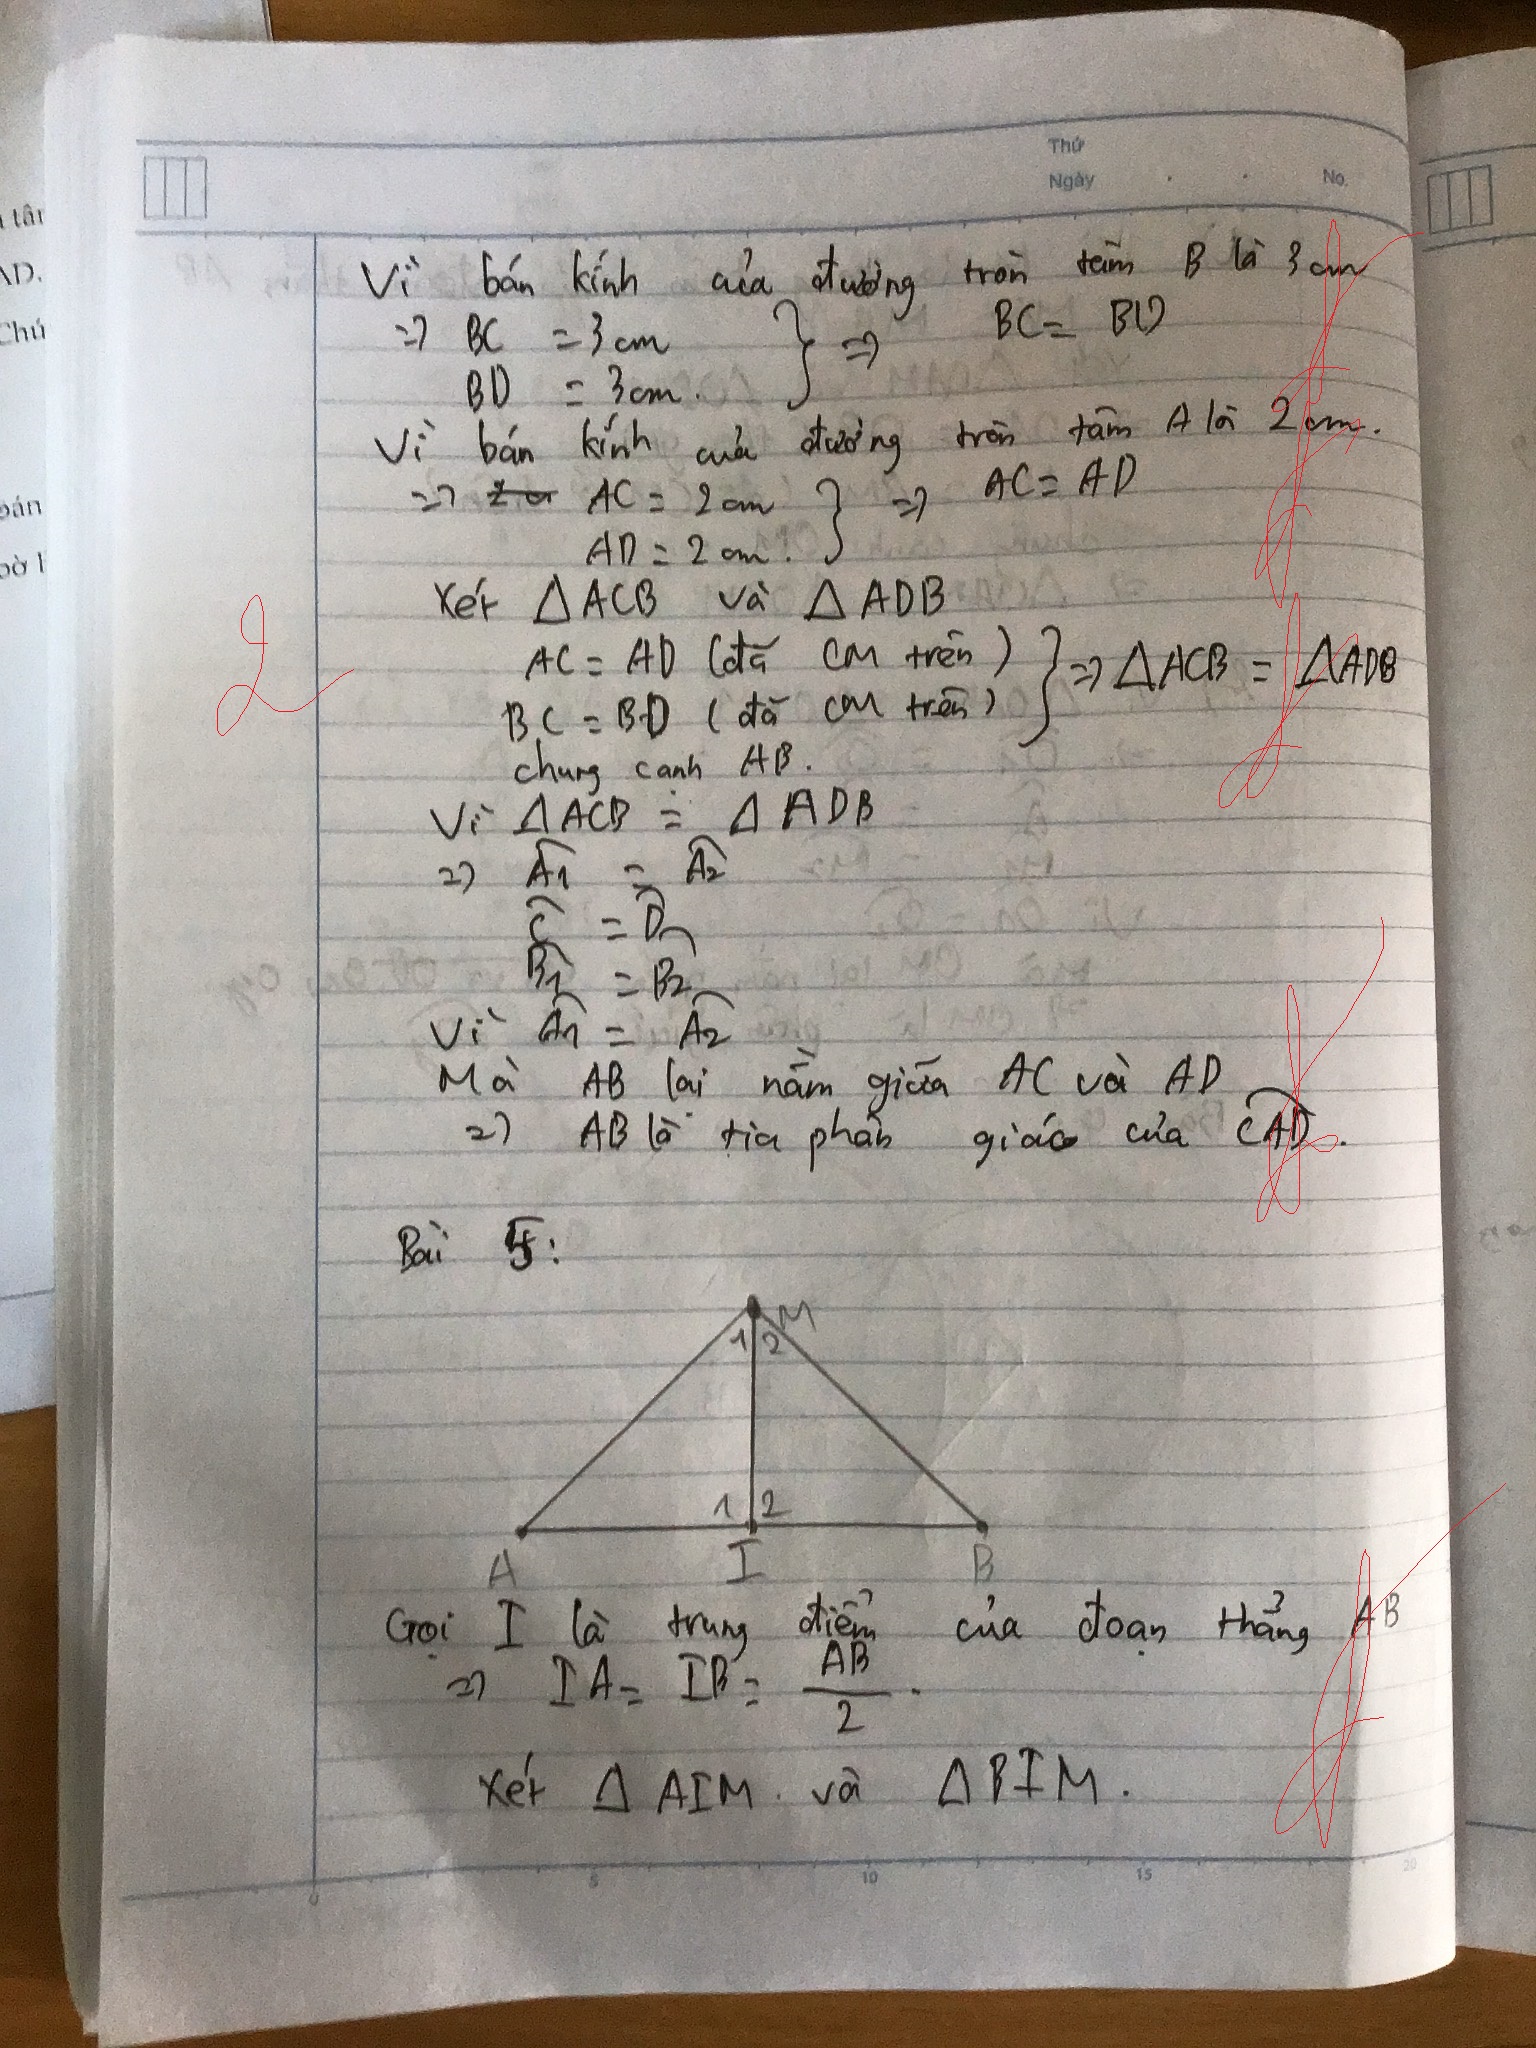 tâm
AD.
Chú
bán
bờ l
Thứ
Ngày . . No.
Vì bán kính của đường tròn tâm B là 3 cm
=> BC = 3 cm } => BC = BD
BD = 3 cm.
Vì bán kính của đường tròn tâm A là 2 cm.
=> AC = 2 cm } => AC = AD
AD = 2 cm.
Xét △ ACB và △ ADB
AC = AD (đã CM trên) } => △ ACB = △ADB
2
BC = BD (đã CM trên)
chung cạnh AB.
Vì △ ACB = △ ADB
=> Â1 = Â2
Ĉ = D̂
B̂1 = B̂2
Vì Â1 = Â2
Mà AB lại nằm giữa AC và AD
=> AB là tia phân giác của CÂD.
Bài 5:
M
1 2
1 2
A I B
Gọi I là trung điểm của đoạn thẳng AB
=> IA = IB = AB/2.
Xét △ AIM và △ BIM.
0 5 10 15 20